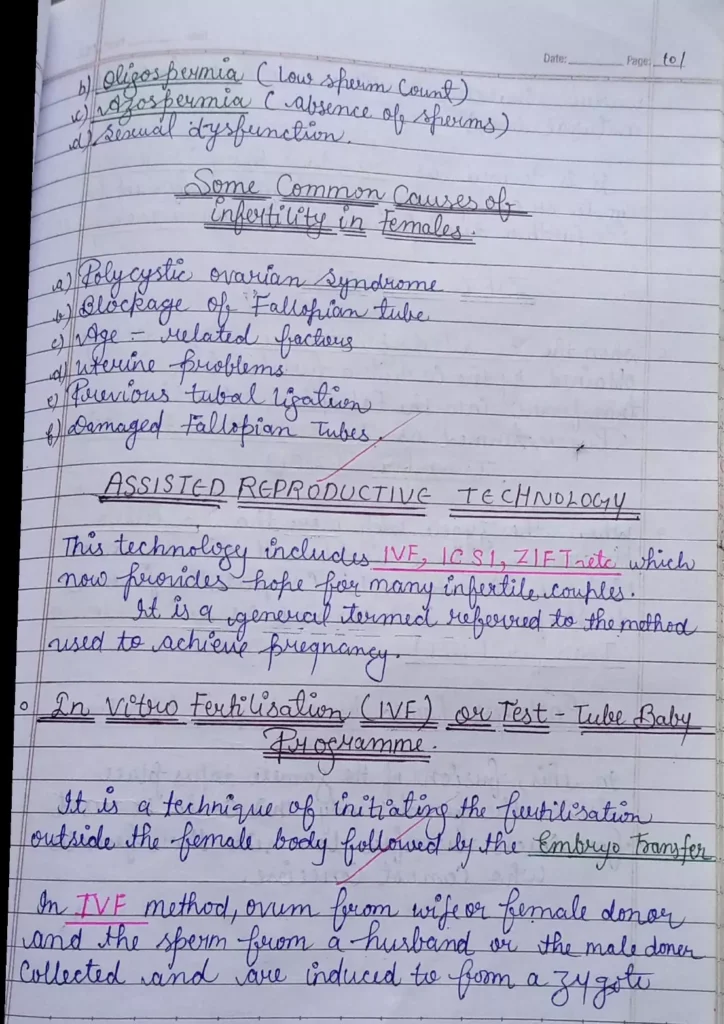 Date: Page: 101
b) Oligospermia (Low sperm Count)
c) Azospermia (absence of sperms)
d) Sexual dysfunction.
Some Common Causes of
infertility in Females.
a) Polycystic ovarian Syndrome
b) Blockage of Fallopian tube
c) Age - related factors
d) Uterine problems
e) Previous tubal ligation
f) Damaged Fallopian Tubes.
ASSISTED REPRODUCTIVE TECHNOLOGY
This technology includes IVF, ICSI, ZIFT etc which
now provides hope for many infertile couples.
It is a general termed referred to the method
used to achieve pregnancy.
In Vitro Fertilisation (IVF) or Test-Tube Baby
Programme.
It is a technique of initiating the fertilisation
outside the female body followed by the Embryo Transfer
In IVF method, ovum from wife or female donor
and the sperm from a husband or the male doner
Collected and are induced to form a zygote